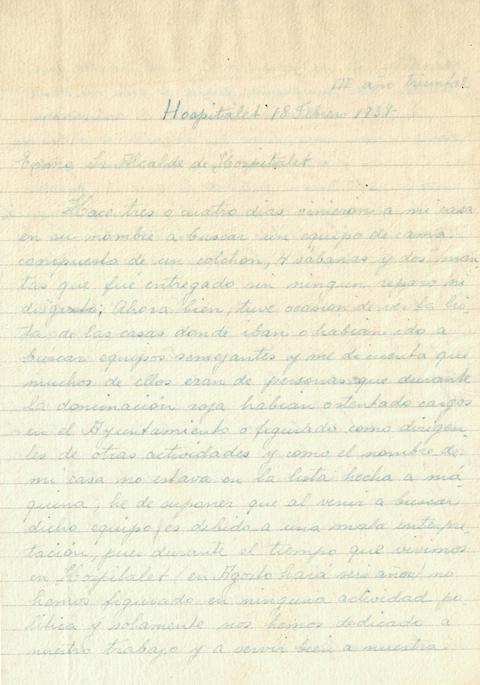 III año triunfal
Hospitalet 18 Febrero 1939-
Excmo Sr Alcalde de Hospitalet
Hace tres o cuatro dias vinieron a mi casa
en su nombre a buscar un equipo de cama
compuesto de un colchon, 4 sabanas y dos man
tas que fue entregado sin ningun reparo ni
disgusto; Ahora bien, tuve ocasion de ver la lis-
ta de las casas donde iban o habian ido a
buscar equipos semejantes y me di cuenta que
muchos de ellos eran de personas que durante
la dominación roja habian ostentado cargos
en el Ayuntamiento o figurado como dirigen-
tes de otras actividades y como el nombre de
mi casa no estava en la lista hecha a má
quina, he de suponer que al venir a buscar
dicho equipo es debido a una mala interpre-
tación, pues durante el tiempo que vivimos
en Hospitalet (en Agosto hará seis años) no
hemos figurado en ninguna actividad po
lítica y solamente nos hemos dedicado a
nuestro trabajo y a servir bien a nuestra